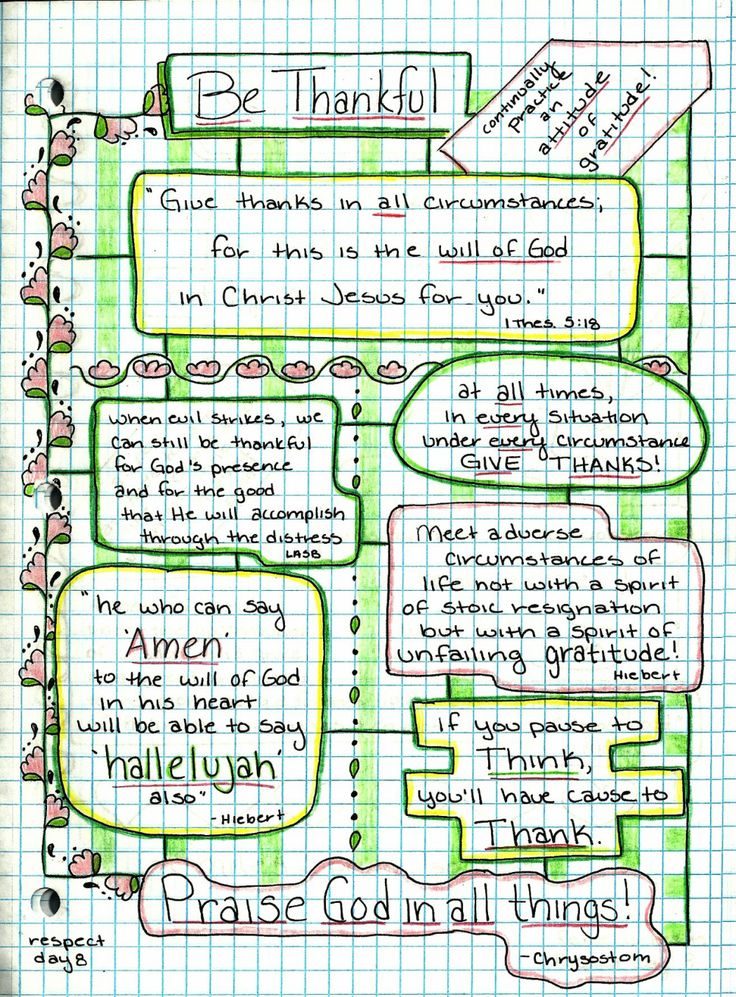 Be Thankful
continually
practice
an
attitude
of
gratitude!
"Give thanks in all circumstances;
for this is the will of God
in Christ Jesus for you."
1 Thes. 5:18
at all times,
in every situation
under every circumstance
GIVE THANKS!
when evil strikes, we
can still be thankful
for God's presence
and for the good
that He will accomplish
through the distress
LASB
Meet adverse
circumstances of
life not with a spirit
of stoic resignation
but with a spirit of
unfailing gratitude!
Hiebert
"he who can say
'Amen'
to the will of God
in his heart
will be able to say
'hallelujah'
also"
-Hiebert
if you pause to
Think,
you'll have cause to
Thank.
Praise God in all things!
-Chrysostom
respect
day 8